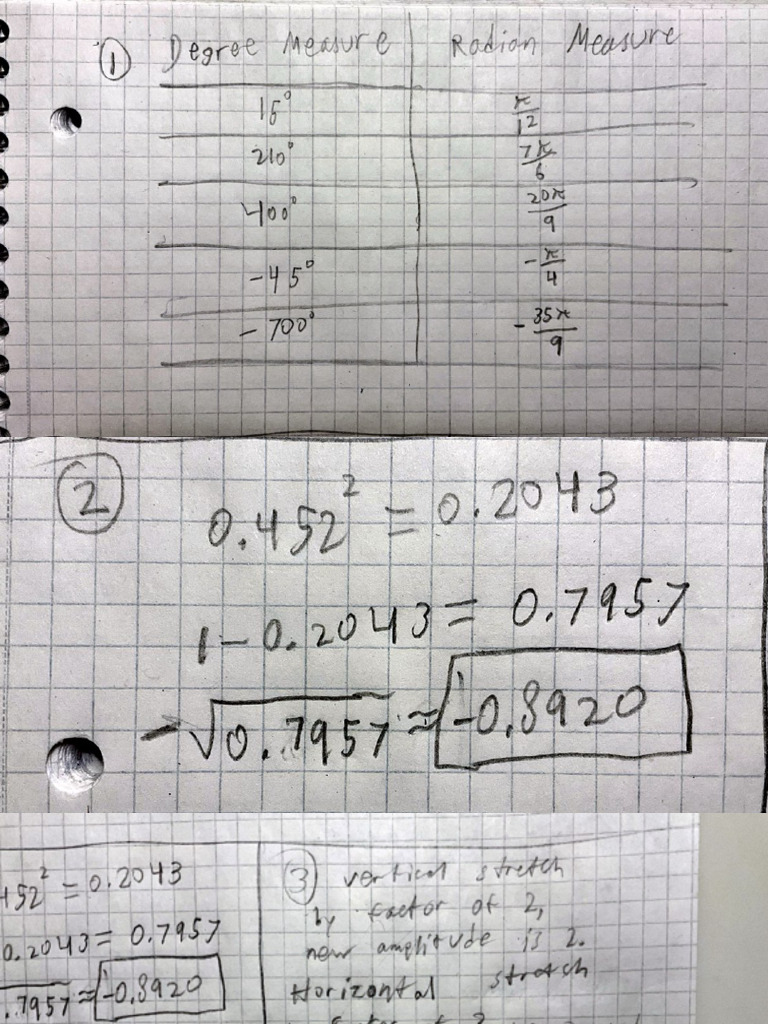 ① Degree Measure Radian Measure
15° π/12
210° 7π/6
400° 20π/9
-45° -π/4
-700° -35π/9
② 0.452² = 0.2043
1 - 0.2043 = 0.7957
-√0.7957 ≈ -0.8920
452² = 0.2043
0.2043 = 0.7957
.7957 ≈ -0.8920
③ vertical stretch
by factor of 2,
new amplitude is 2.
Horizontal stretch